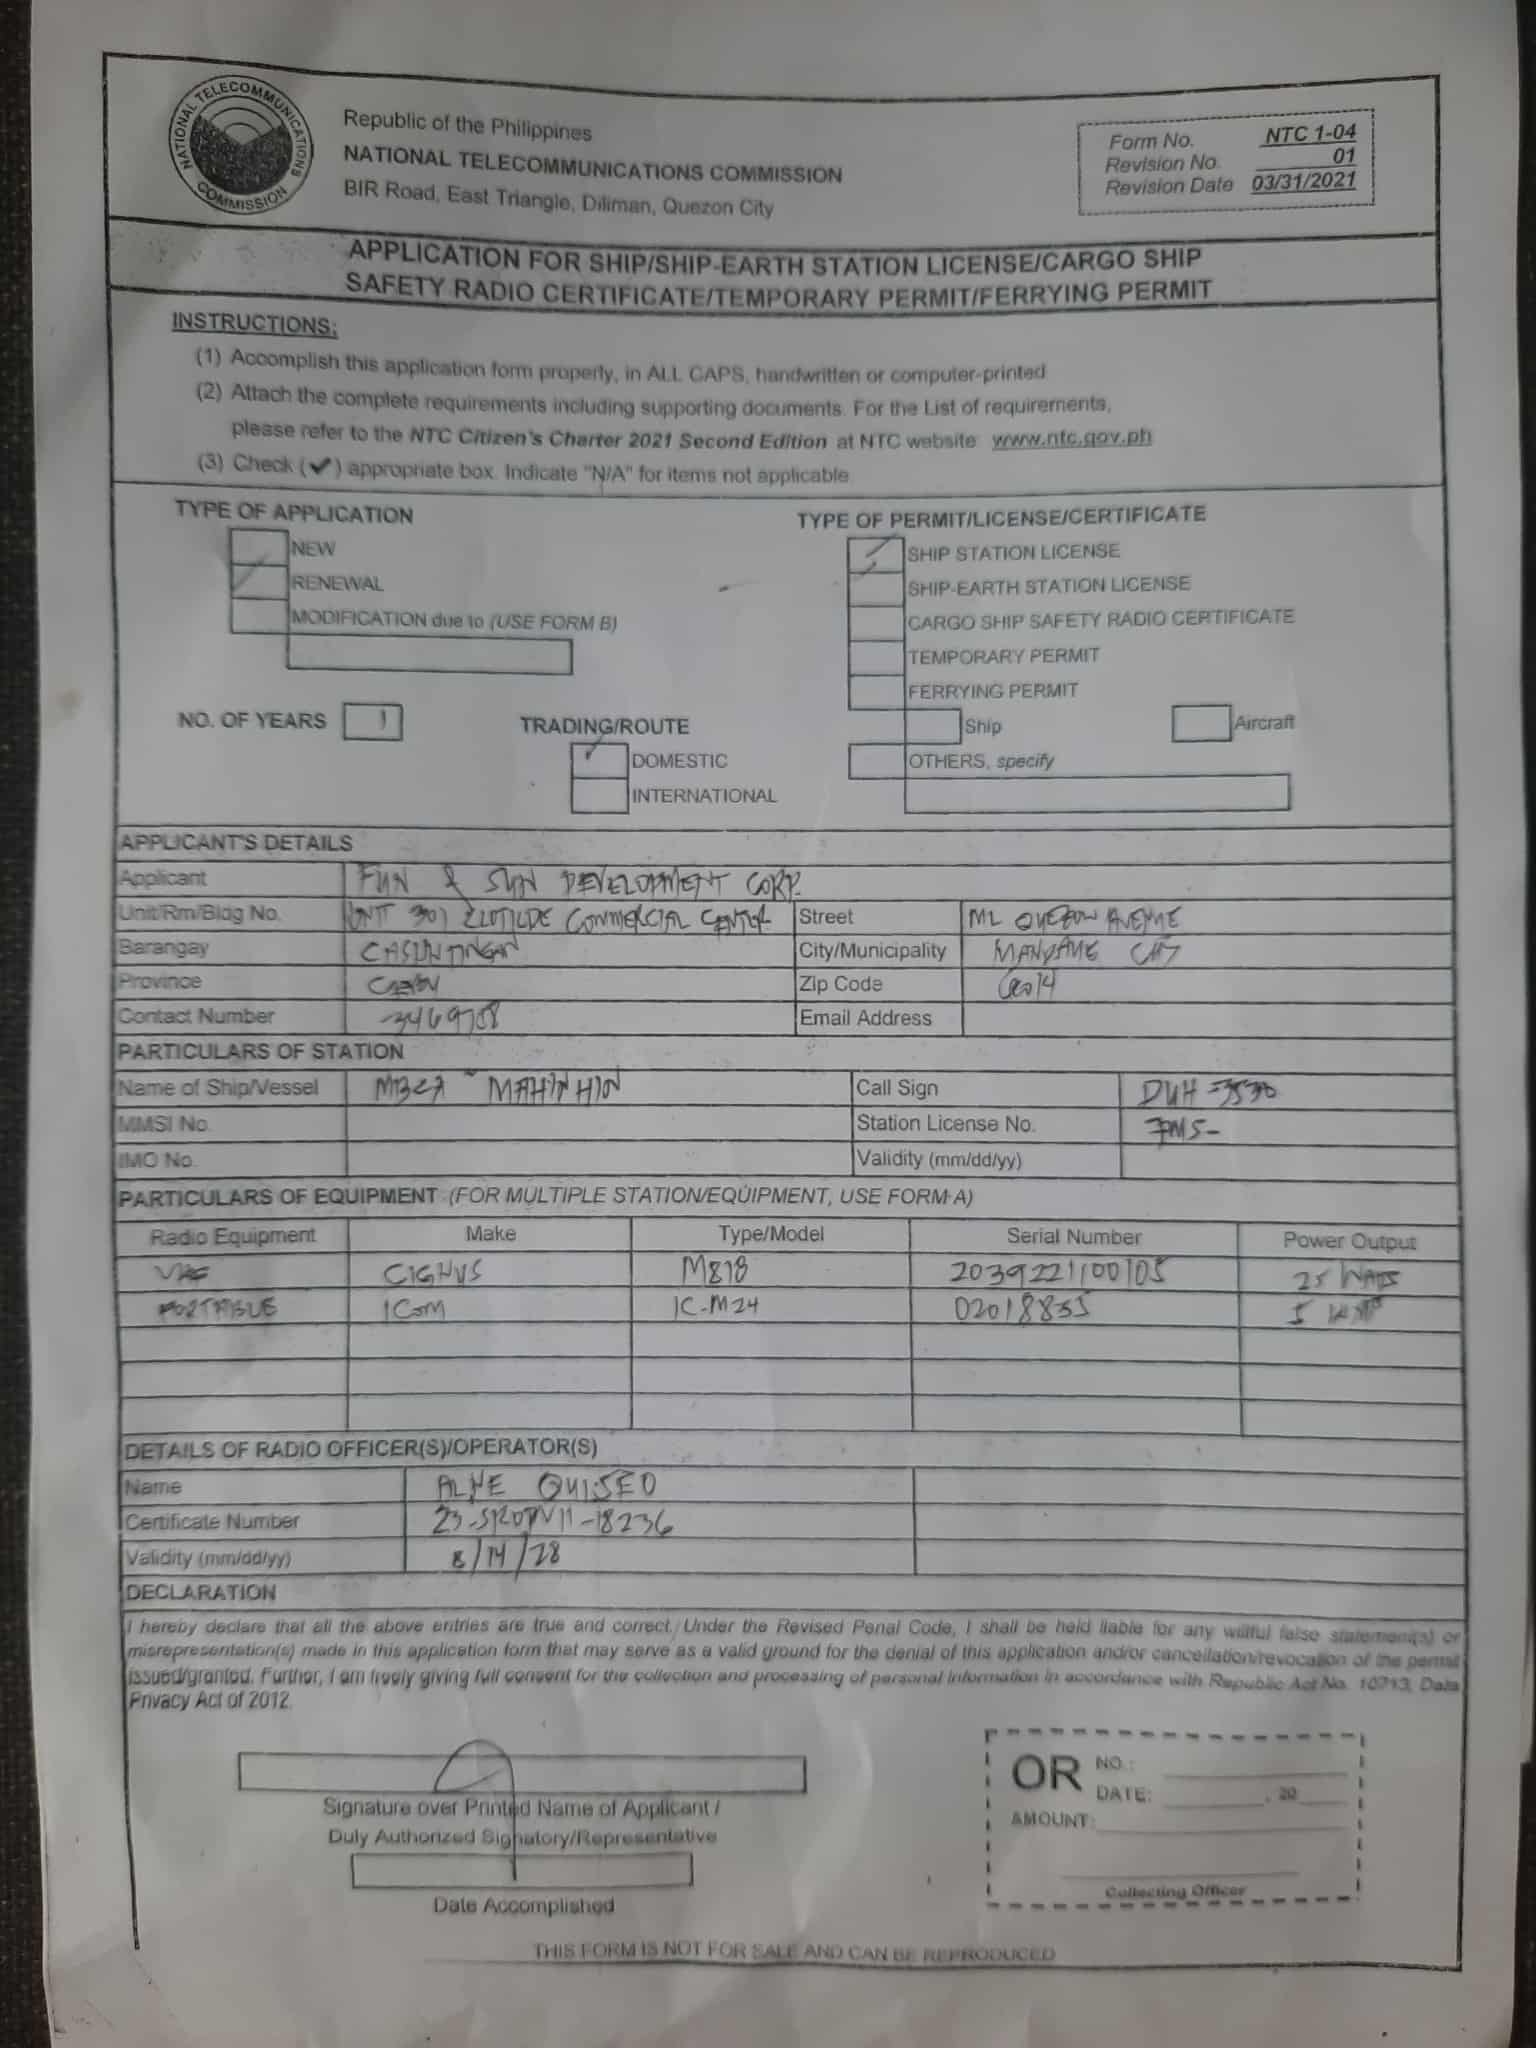 NATIONAL TELECOMMUNICATIONS COMMISSION
Republic of the Philippines
NATIONAL TELECOMMUNICATIONS COMMISSION
BIR Road, East Triangle, Diliman, Quezon City
Form No. NTC 1-04
Revision No. 01
Revision Date 03/31/2021
APPLICATION FOR SHIP/SHIP-EARTH STATION LICENSE/CARGO SHIP
SAFETY RADIO CERTIFICATE/TEMPORARY PERMIT/FERRYING PERMIT
INSTRUCTIONS:
(1) Accomplish this application form properly, in ALL CAPS, handwritten or computer-printed
(2) Attach the complete requirements including supporting documents. For the List of requirements,
please refer to the NTC Citizen's Charter 2021 Second Edition at NTC website www.ntc.gov.ph
(3) Check (✔) appropriate box. Indicate "N/A" for items not applicable
TYPE OF APPLICATION
NEW
RENEWAL
MODIFICATION due to (USE FORM B)
NO. OF YEARS 1
TRADING/ROUTE
DOMESTIC
INTERNATIONAL
TYPE OF PERMIT/LICENSE/CERTIFICATE
SHIP STATION LICENSE
SHIP-EARTH STATION LICENSE
CARGO SHIP SAFETY RADIO CERTIFICATE
TEMPORARY PERMIT
FERRYING PERMIT
Ship Aircraft
OTHERS, specify
APPLICANT'S DETAILS
Applicant FUN & SUN DEVELOPMENT CORP.
Unit/Rm/Bldg No. UNIT 301 CLOTILDE COMMERCIAL CENTER Street ML QUEZON AVENUE
Barangay CASUNTINGAN City/Municipality MANDAUE CITY
Province CEBU Zip Code 6014
Contact Number 3469788 Email Address
PARTICULARS OF STATION
Name of Ship/Vessel MBCA MAHINHIN Call Sign DUH-3530
MMSI No. Station License No.
IMO No. Validity (mm/dd/yy)
PARTICULARS OF EQUIPMENT (FOR MULTIPLE STATION/EQUIPMENT, USE FORM A)
Radio Equipment Make Type/Model Serial Number Power Output
VHF CIGNUS M878 2039221100105 25 WATTS
PORTABLE ICOM IC-M24 02018835 5 WATTS
DETAILS OF RADIO OFFICER(S)/OPERATOR(S)
Name ALNE QUISEO
Certificate Number 23-SROPVII-18236
Validity (mm/dd/yy) 8/14/28
DECLARATION
I hereby declare that all the above entries are true and correct. Under the Revised Penal Code, I shall be held liable for any willful false statement(s) or
misrepresentation(s) made in this application form that may serve as a valid ground for the denial of this application and/or cancellation/revocation of the permit
issued/granted. Further, I am freely giving full consent for the collection and processing of personal information in accordance with Republic Act No. 10713, Data
Privacy Act of 2012.
Signature over Printed Name of Applicant /
Duly Authorized Signatory/Representative
Date Accomplished
OR NO.:
DATE: , 20
AMOUNT:
Collecting Officer
THIS FORM IS NOT FOR SALE AND CAN BE REPRODUCED